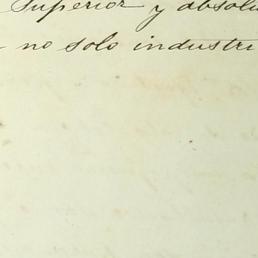 Superior y absolu
no solo industri